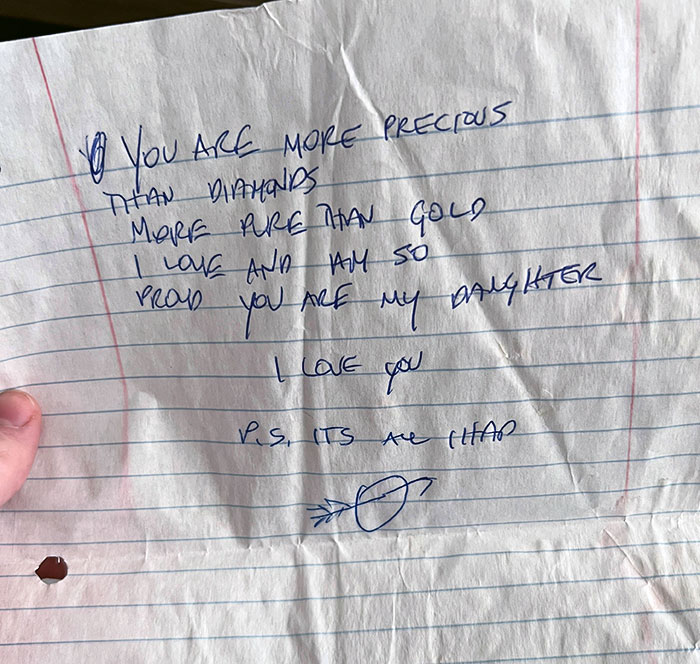 YOU ARE MORE PRECIOUS
THAN DIAMONDS
MORE PURE THAN GOLD
I LOVE AND AM SO
PROUD YOU ARE MY DAUGHTER
I LOVE YOU
P.S. ITS ALL I HAD